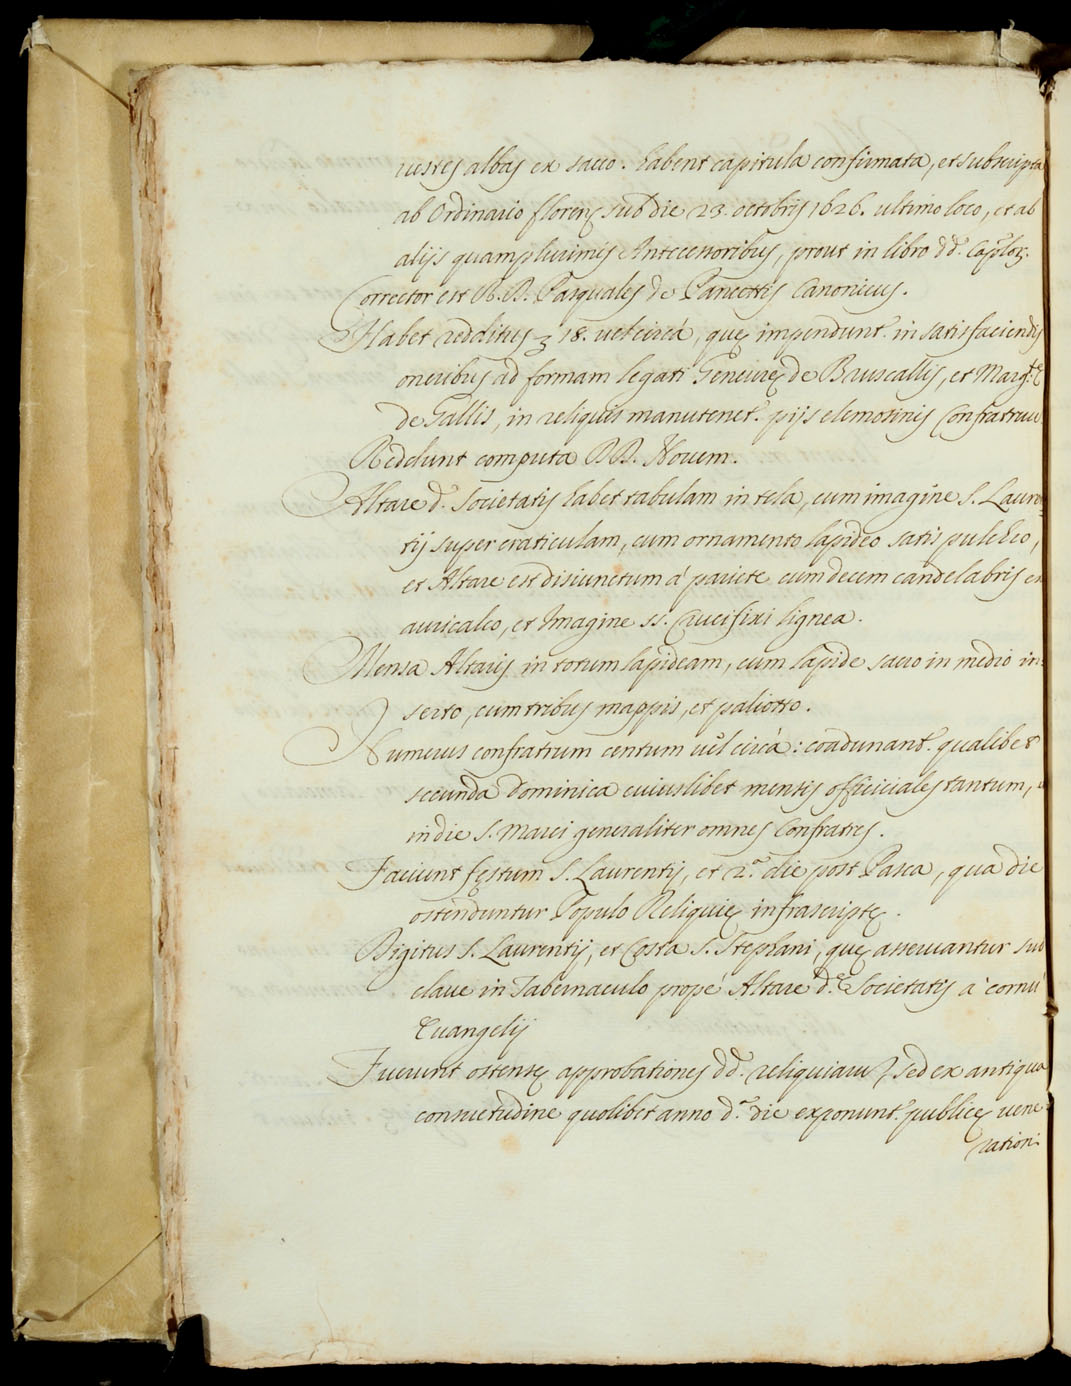 uestes albas ex sacco. habent capitula confirmata, et subscripta
ab Ordinario florenę sub die 23. octobris 1626. ultimo loco, et ab
alijs quamplurimis Antecessoribus, prout in libro dd. Caplor.
Corrector est R. D. Pasquales de Panettis Canonicus.
Habet redditus 18. uel circà, quę impendunt. in satisfaciendis
oneribus ad formam legati Geneurę de Bruscallis, et Marg.tę
de Gallis, in reliquis manutenet. pijs elemosinis Confratruu.
Reddunt computa DD. Nouem.
Altare d. societatis habet tabulam in tela, cum imagine S. Lauren
tij super craticulam, cum ornamento lapideo satis pulchro,
et Altare est disiunctum à pariete cum decem candelabris ex
auricalco, et Imagine SS. Crucifixi lignea.
Mensa Altaris in totum lapideam, cum lapide sacro in medio in-
serto, cum tribus mappis, et paliotto.
Numerus confratrum centum uel circà: coadunant. qualibet
secunda dominica cuiuslibet mensis officiciales tantum,
in die S. Marci generaliter omnes Confratres.
Faciunt fęstum S. Laurentij, et 2.a die post Pasca, qua die
ostenduntur Populo Reliquię infrascriptę.
Digitus S. Laurentij, et Costa S. Stephani, quę asseruantur sub
claue in Tabernaculo propè Altare d.ę Societatis à cornu
Euangelij
Fuerunt ostensę approbationes dd. reliquiaru, sed ex antiqua
consuetudine quolibet anno d.a die exponunt. publicę uene
rationi